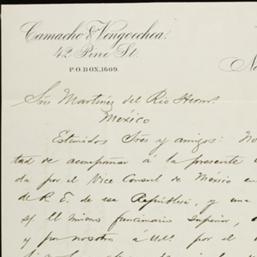 Camacho & Vengoechea.
42 Pine St.
P.O. BOX, 1609.
Sres Martínez del Rio Hermos
Mexico
Estimados Sres y amigos: No
tad de acompañar á la presente
da por el Vice Consul de México en
de R. E. de esa República, y una
el mismo funcionario Superior,
y por nosotros á Uds. por el